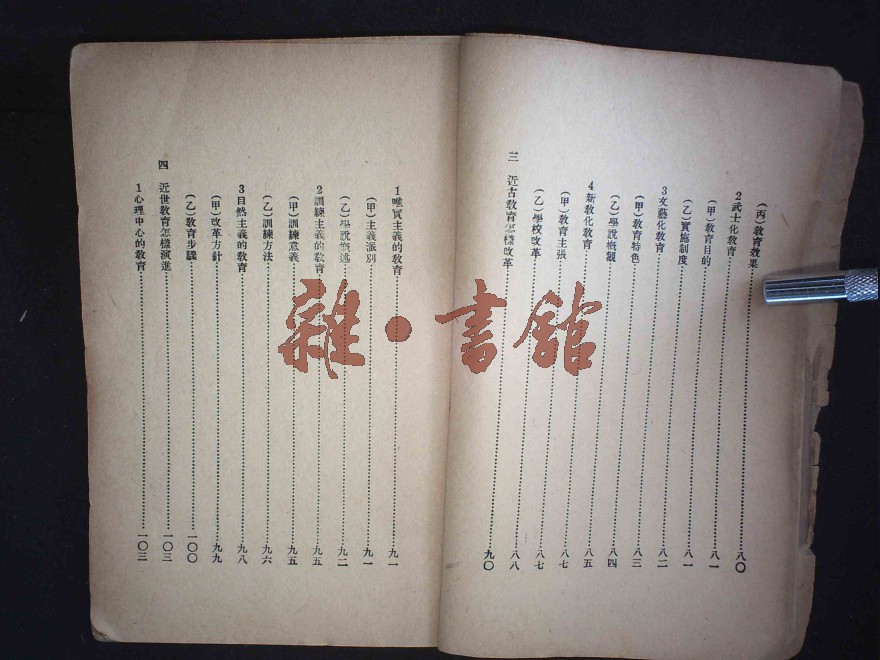 (丙)敎育效果……八〇
2武士化敎育……八一
(甲)敎育目的……八一
(乙)實施制度……八一
3文藝化敎育……八二
(甲)敎育特色……八三
(乙)學說槪觀……八四
4新敎化敎育……八五
(甲)敎育主張……八七
(乙)學校改革……八七
三 近古敎育怎樣改革……八八
1唯實主義的敎育……九一
(甲)主義派別……九一
(乙)學說槪述……九二
2訓練主義的敎育……九五
(甲)訓練意義……九五
(乙)訓練方法……九六
3自然主義的敎育……九八
(甲)改革方針……九九
(乙)敎育步驟……一〇〇
四 近世敎育怎樣演進……一〇三
1心理中心的敎育……一〇三
雜·書館